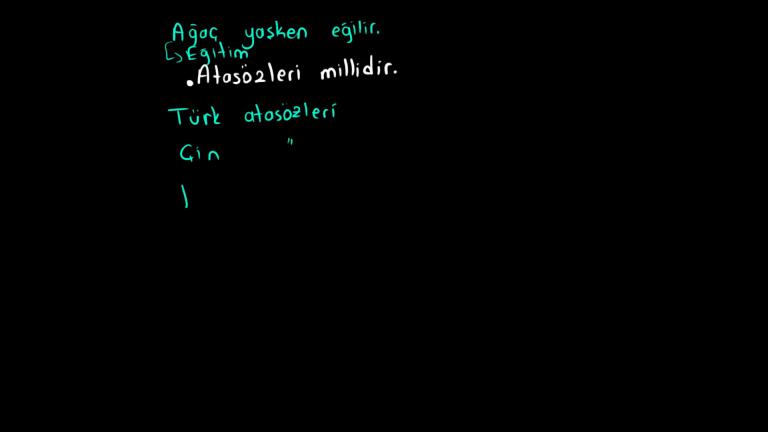 Ağaç yaşken eğilir.
↳ Eğitim
• Atasözleri millidir.
Türk atasözleri
Çin "